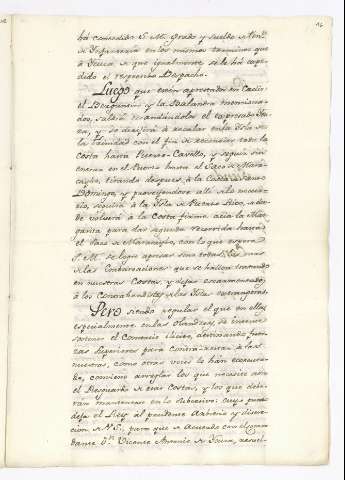 ha concedido S. M. Grado y sueldo de
de Infantería en los mismos terminos que
à Ycuza de que igualmente se le há expe-
dido el respectivo Despacho.
Luego que estén aprestados en Cadiz
el Bergantin y la Balandra menciona-
dos, saldrá mandandolos el expresado
y se dirijirá à recalar en la Isla de
la Trinidad con el fin de reconocer toda la
Costa hasta Puerto-Cavello, y seguir sin
entrar en el Puerto hasta el Saco de Mara-
caybo, tirando despues à la Ciudad de Santo
Domingo, y proveyendose alli de lo necesa-
rio, seguirá à la Isla de Puerto Rico, de don-
de volverá à la Costa firme acia la Mar-
garita para dar segunda recorrida hasta
el Saco de Maracaybo, con lo que espera
S. M. se logre apresar
de las Embarcaciones que se hallen tratando
en nuestras Costas, y dejar escarmentados
à los Contrabandistas de las Islas extrangeras.
Pero siendo regular el que en ellas,
especialmente en las Olandesas, se intente
sostener el Comercio ilicito, destinando fuer-
zas superiores para contra-restar à las
nuestras, como otras veces lo han executa-
do, conviene arreglar los que necesite
el Resguardo de esas Costas, y los que debe-
rán mantenerse en lo subcesivo: cuyo punto
deja el Rey al prudente Arbitrio y discre-
cion de V. S. para que de Acuerdo con el Coman-
dante Dn. Vicente Antonio de Ycuza, resuel-